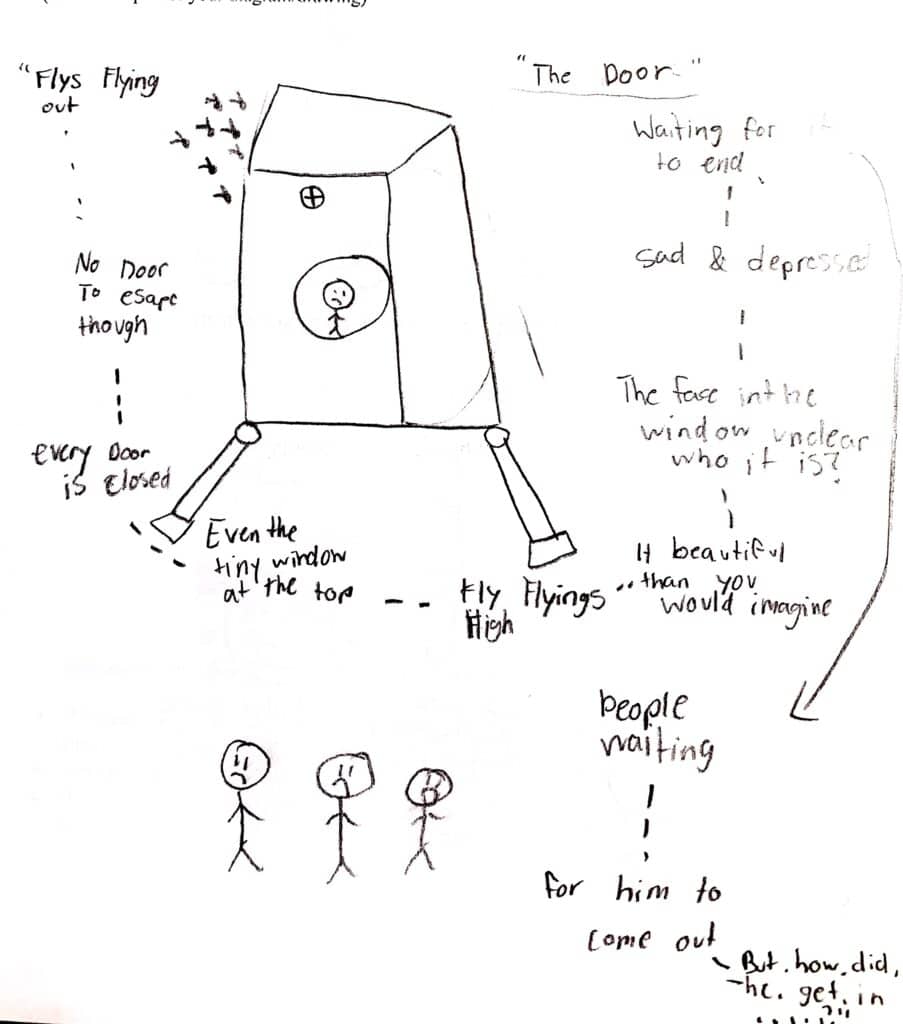 "Flys Flying
out
No Door
To esape
though
every Door
is closed
Even the
tiny window
at the top
Fly Flyings
High
"The Door"
Waiting for it
to end
Sad & depressed
The face in the
window unclear
who it is?
It beautiful
than you
would imagine
people
waiting
for him to
come out
But.how.did,
he. get.in
......?"